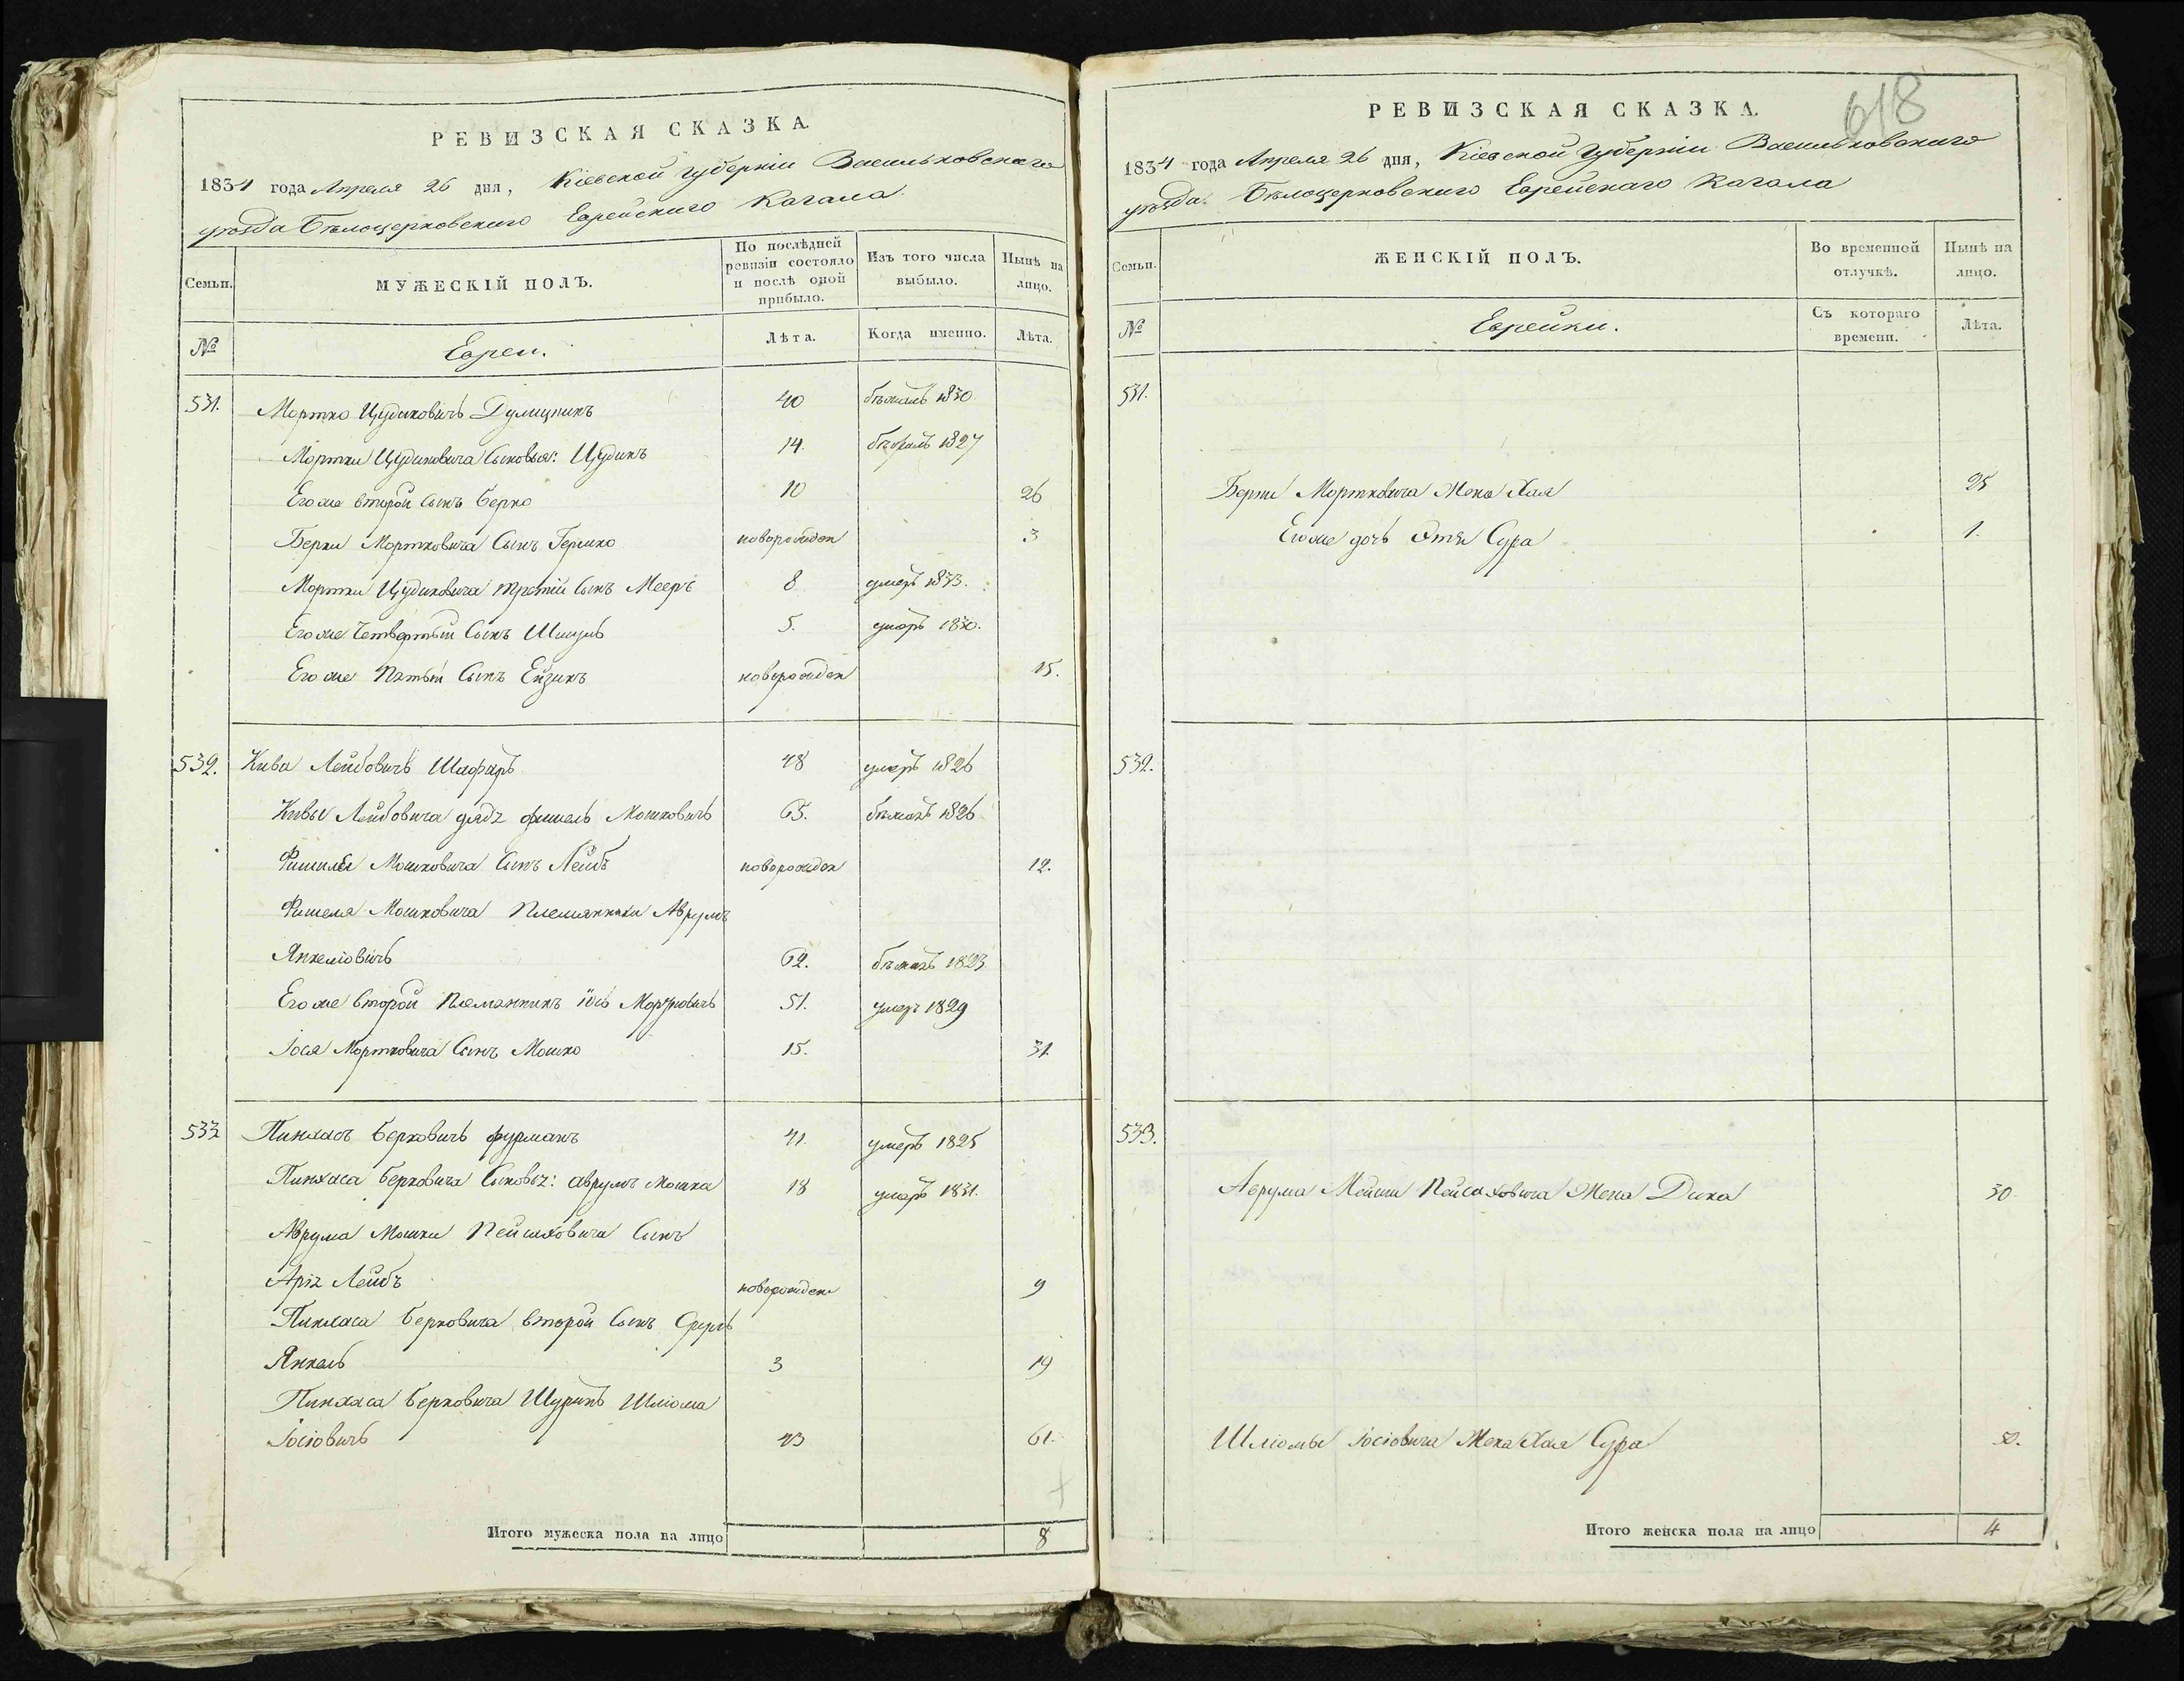 РЕВИЗСКАЯ СКАЗКА.
1834 года Апреля 26 дня, Кіевской Губерніи Васильковскаго
уѣзда Бѣлоцерковскаго Еврейскаго Кагала.
Семьи.
МУЖЕСКІЙ ПОЛЪ.
По послѣдней ревизіи состояло и послѣ оной прибыло.
Изъ того числа выбыло.
Нынѣ на лицо.
№
Евреи.
Лѣта.
Когда именно.
Лѣта.
531. Мортко Цудиковичъ 40 бѣжалъ 1830
Мортки Цудиковича Сыновья: Цудикъ 14. 1827
Его же второй сынъ Берко 10 26
Берки Мортковича Сынъ Гершко новорожден 3
Мортки Цудиковича третій Сынъ Мееръ 8 умеръ 1833.
Его же Четвертый Сынъ 5. умеръ 1830.
Его же Пятый Сынъ Ейзикъ новорожден 15.
532. Кива Лейбовичъ Шафаръ 48 умеръ 1826
Кивы Лейбовича дядя фишель Мошковичъ 65. бѣжалъ 1826
Фишеля Мошковича Сынъ Лейбъ новорожден 12.
Фишеля Мошковича Племянники Аврумъ
Янкеліовичъ 62. бѣжалъ 1823
Его же второй Племянникъ Іось Мортковичъ 51. умеръ 1829
Іося Мортковича Сынъ Мошко 15. 31.
533 Пинхасъ Берковичъ фурманъ 41. умеръ 1825
Пинхаса Берковича Сыновья: аврумъ Мошка 18 умеръ 1831.
Аврума Мошки Сынъ
Аріа Лейбъ новорожден 9
Пинхаса Берковича второй Сынъ Сруль
Янкель 3 19
Пинхаса Берковича Шуринъ Шліома
Іосіовичъ 43 61.
Итого мужеска пола на лицо 8
618
РЕВИЗСКАЯ СКАЗКА.
1834 года Апреля 26 дня, Кіевской Губерніи Васильковскаго
уѣзда Бѣлоцерковскаго Еврейскаго Кагала
Семьи.
ЖЕНСКІЙ ПОЛЪ.
Во временной отлучкѣ.
Нынѣ на лицо.
№
Еврейки.
Съ котораго времени.
Лѣта.
531.
Берки Мортковича Жена Хая 25
Его же дочь Сура 1.
532.
533.
Аврума Пейсаховича Жена 30
Шліомы Іосіовича Жена Хая Сура 50.
Итого женска пола на лицо 4